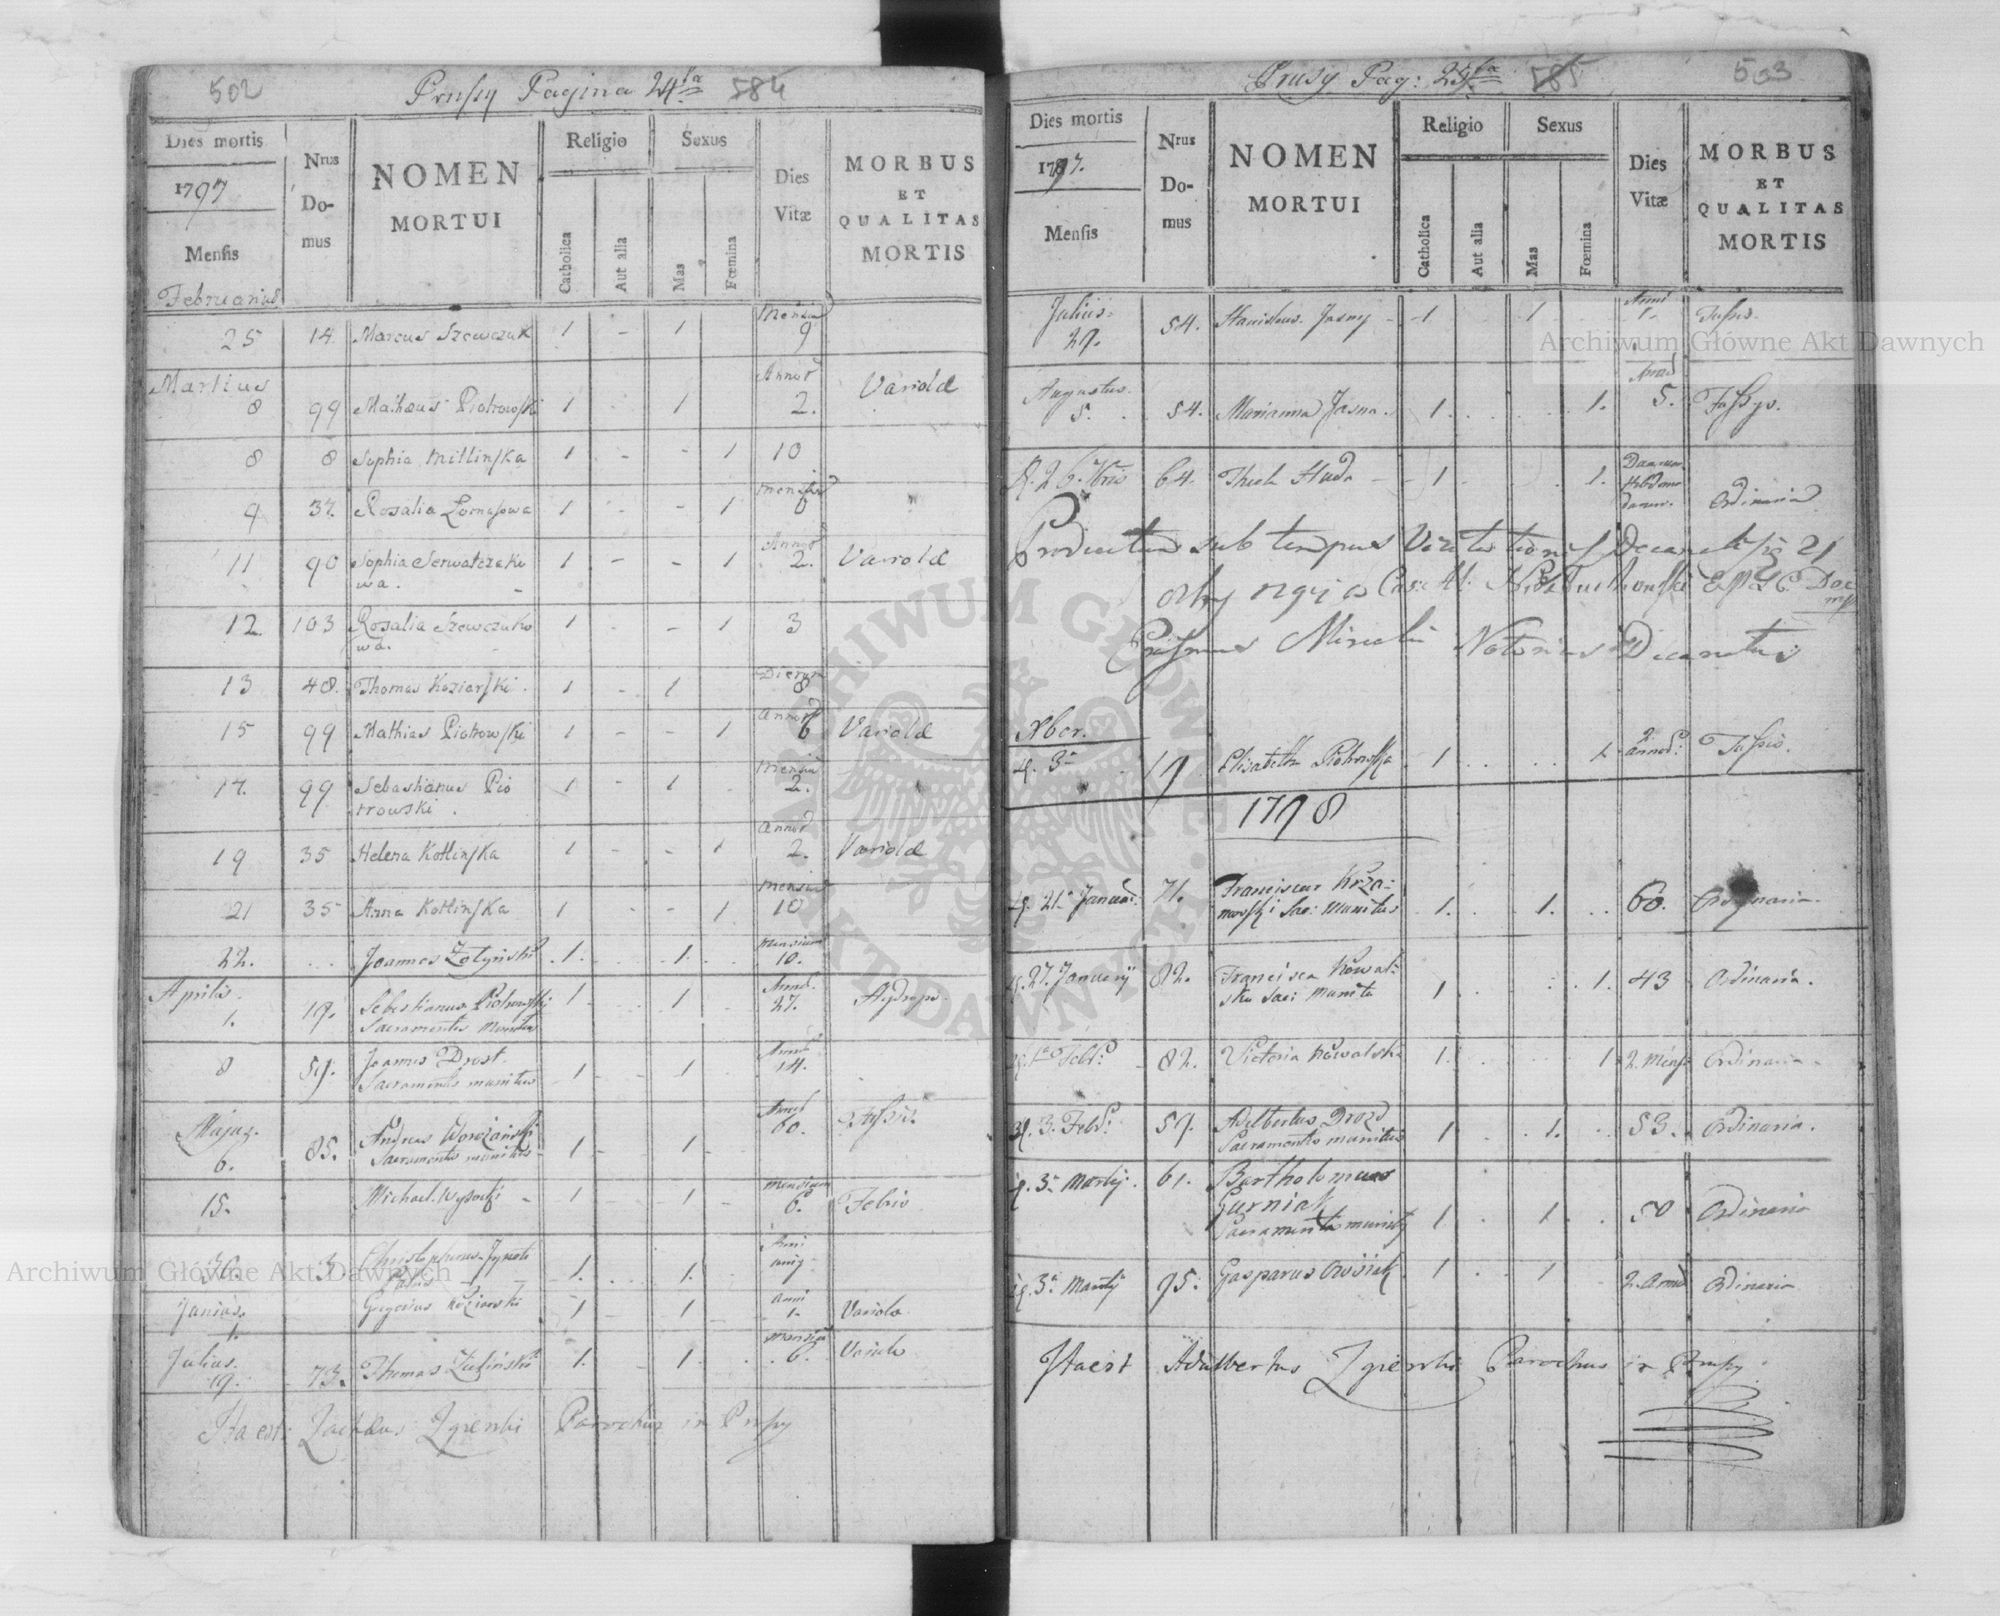 502
Prusy Pagina 24ta 584
Dies mortis
1797
Mensis
Nrus Do-mus
NOMEN MORTUI
Religio
Catholica
Aut alia
Sexus
Mas
Fœmina
Dies Vitæ
MORBUS ET QUALITAS MORTIS
Februarius
25 14 Marcus Szewczuk 1 - 1 Mensiū 9
Martius
8 99 Matheus Piotrowski 1 - 1 Annoř 2. Variolæ
8 8 Sophia Millinska 1 - - 1 10
9 37. Rosalia 1 - - 1 Mensiū 8
11 90 Sophia Serwatczako
wa. 1 - - 1 Annoř 2. Variolæ
12 103 Rosalia Szewczuko
wa. 1 - - 1 3
13 48. Thomas Koziarski. 1 - 1 Dierum 8
15 99 Mathias Piotrowski 1 - - 1 Annoř 6 Variolæ
17. 99 Sebastianus Pio
trowski. 1 - 1 Mensiū 2.
19 35 Helena Kotlinska 1 - - 1 Annoř 2. Variolæ
21 35 Anna Kotlinska 1 - 1 Mensiū 10
22. Joannes Zotyński 1. 1. Mensium 10.
Aprilis
1. 19. Sebastianus Piotrowski
Sacramentis munitus 1. 1 27. Hydrops
8 59. Joannes Drost.
Sacramentis munitus 1 1 14.
Majus.
6. 85. Andreas
Sacramentis munitus 1 1 60. Tussis.
15. Michael Wysocki 1 1 mensium 6. Febris
30. 3 Christophorus 1. 1.
Junius.
1. Gregorius Koziarski 1 1 anni 1. Variola
Julius.
19. 73. Thomas 1. 1 mensiū 6. Variola
Ita est Zgierski Parochus in Prusy
Prusy Pag: 25ta 585
503
Dies mortis
1797.
Mensis
Nrus Do-mus
NOMEN MORTUI
Religio
Catholica
Aut alia
Sexus
Mas
Fœmina
Dies Vitæ
MORBUS ET QUALITAS MORTIS
Julius.
29. 54. Stanislaus Jasny 1 1 Anni 1. Tussis.
Augustus.
5. 54. Marianna Jasna. 1. 1. 5. Tussys.
26. 7bris 64. 1 1. Ordinaria
Productum sub tempus Visitationis Decanalis 21
Notarius Decanatus
Xber.
3a 19 Elisabetha Piotrowska 1 1 2 annoř: Tussis.
1798
21a Januař. 71. Franciscus Krza-
nowski Sac: Munitus 1. 1. 60. Ordinaria.
27. Januarij 82. Francisca Kowal-
ska Sac: Munita 1 1. 43 Ordinaria.
1ma Febř: 82. Victoria Kowalska 1. 1 2. Mens: Ordinaria.
3. Febř: 59. Adelbertus Drozd
Sacramentis munitus 1 1. 53. Ordinaria.
3a Martij. 61. Bartholomeus
Gurniak
Sacramentis munitus 1 1. 50 Ordinaria
3a Martij 95. Gasparus 1 1 2. Ordinaria
Ita est Adalbertus Zgierski Parochus in Prusy.
Archiwum Główne Akt Dawnych
Archiwum Główne Akt Dawnych
ARCHIWUM GŁÓWNE AKT DAWNYCH